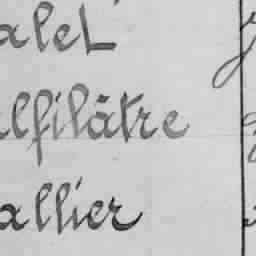 alet
alfilâtre
allier